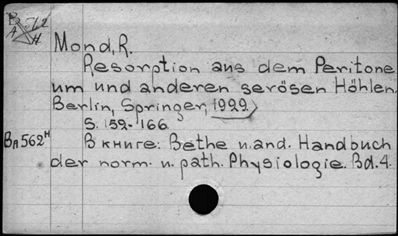 Mond, R.
Resorption aus dem Peritone
um und anderen serösen Höhlen.
Berlin, Springer, 1929.
S. 159-166.
Ba 562 н
В книге: Bethe u. and. Handbuch
der norm. u. path. Physiologie. Bd. 4.